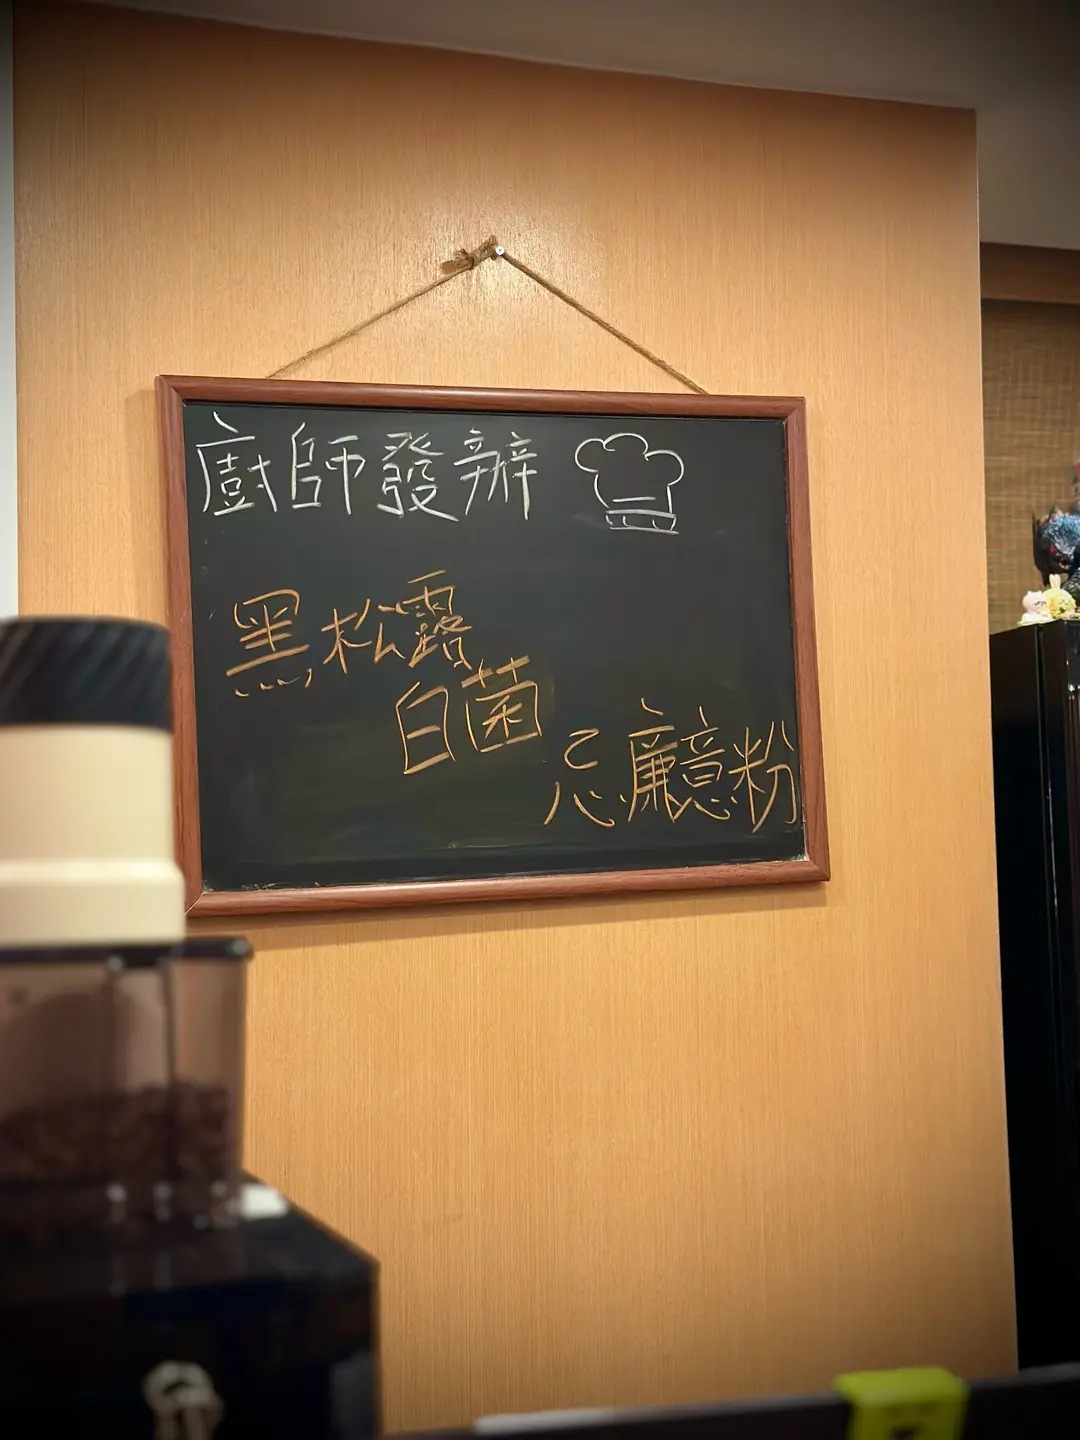 廚師發辦
黑松露
白菌
忌廉意粉